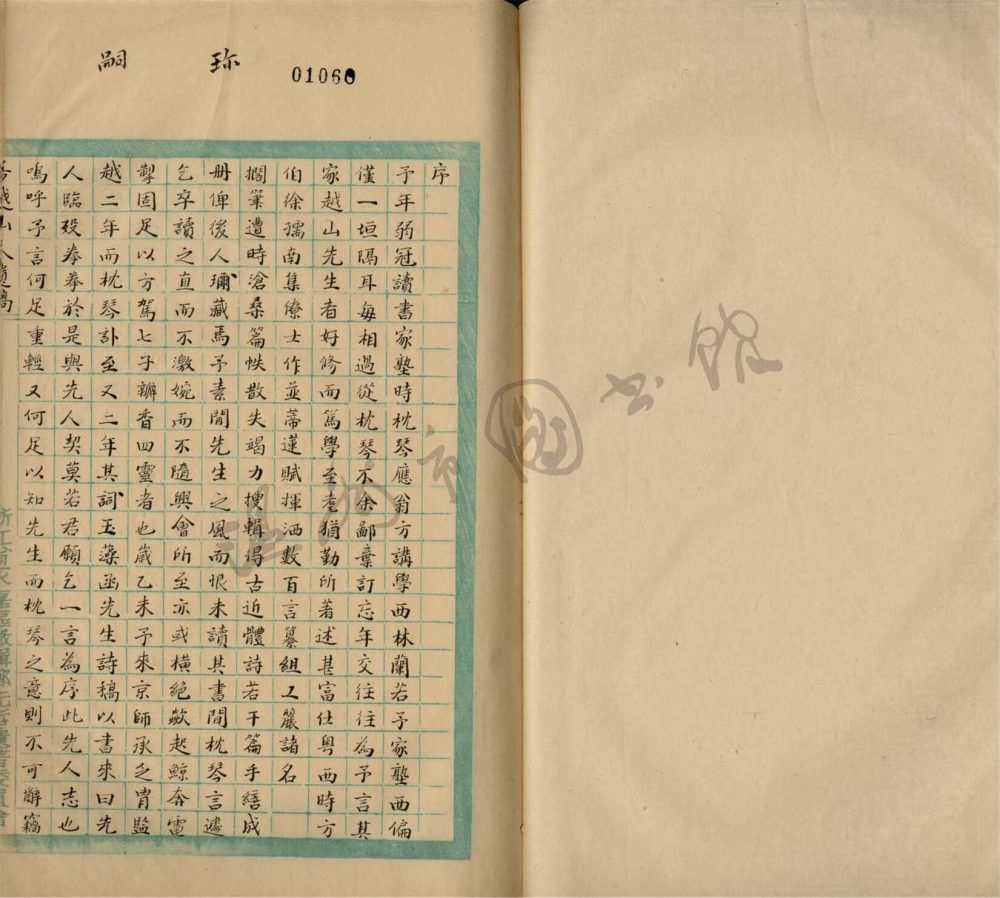 嗣 珎
01060
序
予年弱冠讀書家塾時枕琴應翁方講學西林蘭若予家塾西偏
僅一垣隔耳每相過從枕琴不余鄙棄訂忘年交往往為予言其
家越山先生者好修而篤學至老猶勤所著述甚富仕粵西時方
伯徐孺南集僚士作並蒂蓮賦揮洒數百言纂組工麗諸名
擱筆遭時滄桑篇帙散失竭力搜輯得古近體詩若干篇手繕成
册俾後人瓓藏焉予素聞先生之風而恨未讀其書間枕琴言遽
乞卒讀之直而不激婉而不隨興會所至亦或橫絕歘起鯨奔電
掣固足以方駕七子瓣香四靈者也歲乙未予來京師承乏胄監
越二年而枕琴訃至又二年其詞玉藻函先生詩稿以書來曰先
人臨歿拳拳於是與先人契莫若君願乞一言為序此先人志也
嗚呼予言何足重輕又何足以知先生而枕琴之意則不可辭竊
越山人遺稿
浙江省永嘉區徵輯鄉先哲遺著委員會
溫州市圖書館